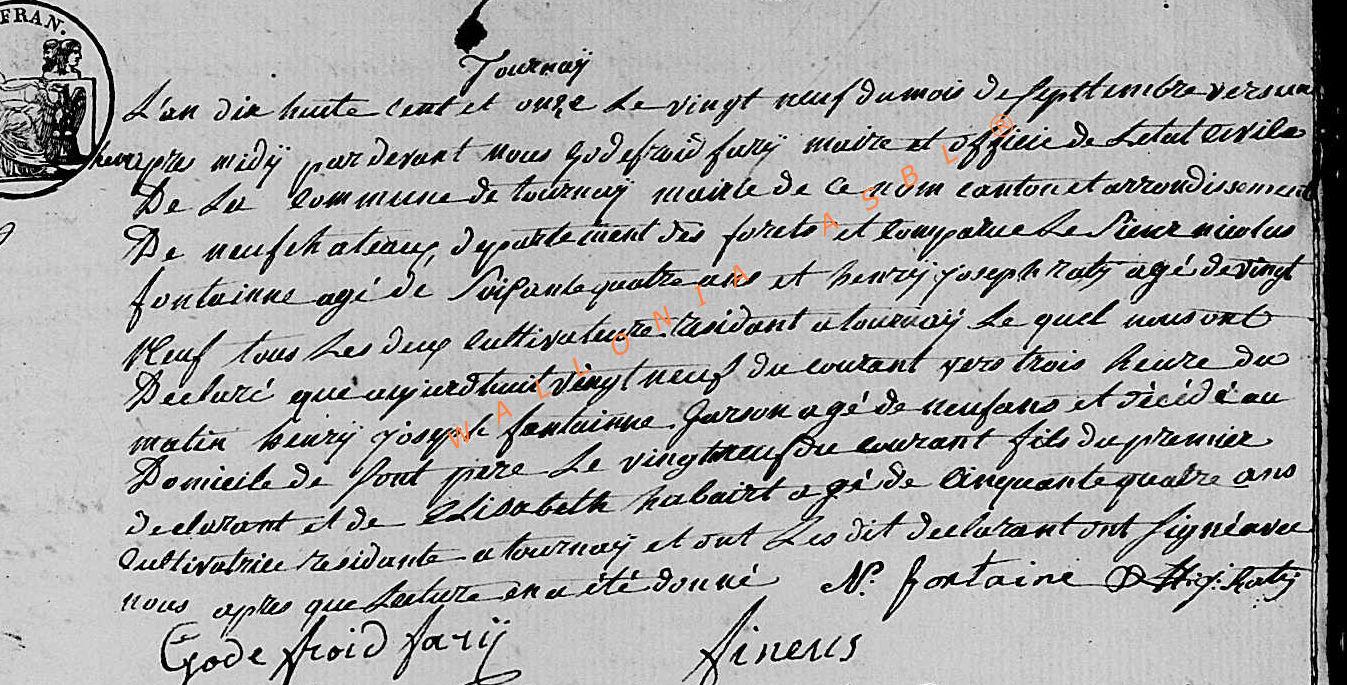 FRAN.
Tournaÿ
L'an dix huite cent et onze Le vingt neuf du mois de Septtembre vers une
heur pres midÿ pardevant nous Godefroid farÿ maire et officié de Letat Civile
De La Commune de tournaÿ mairie de ce nom canton et arrondissement
De neufchateaux, departement des forets et Comparue Le Sieur nicolas
fontainne agé de Soixante quatre ans et henrÿ joseph ratÿ agé de vingt
Neuf tous Les deux Cultivateure residant a tournaÿ Le quel nous ont
Declaré que aujourdhuit vingt neuf du courant vers trois heure du
matin henrÿ joseph fontainne garson agé de neuf ans et décédé au
Domicile de Sont pere Le vingt neuf du courant fils du premier
declarant et de Elisabeth agé de Cinquante quatre ans
Cultivatrice residante a tournaÿ et ont Les dit declarant ont Signé avec
nous apres que Lecture en a été donné N. fontaine ratÿ
Gode froid farÿ
WALLONIA ASBL ®